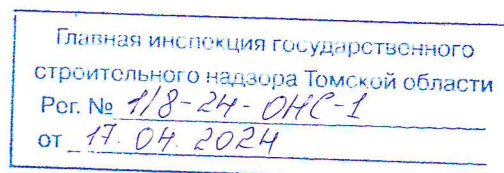 Главная инспекция государственного
строительного надзора Томской области
Рег. № 1/8-24-ОНС-1
от 17.04.2024